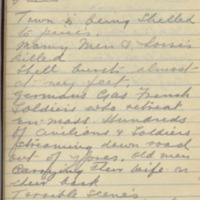 Town is being Shelled
to peices.
Many Men & Horses
killed
Shell bursts almost
at my feet.
Germans Gas French
Soldiers who retreat
En-Mass. Hundreds
of Civilians & Soldiers
streaming down road
out of Ypres. Old men
Carrying their wife on
their back
Terrible Scene's